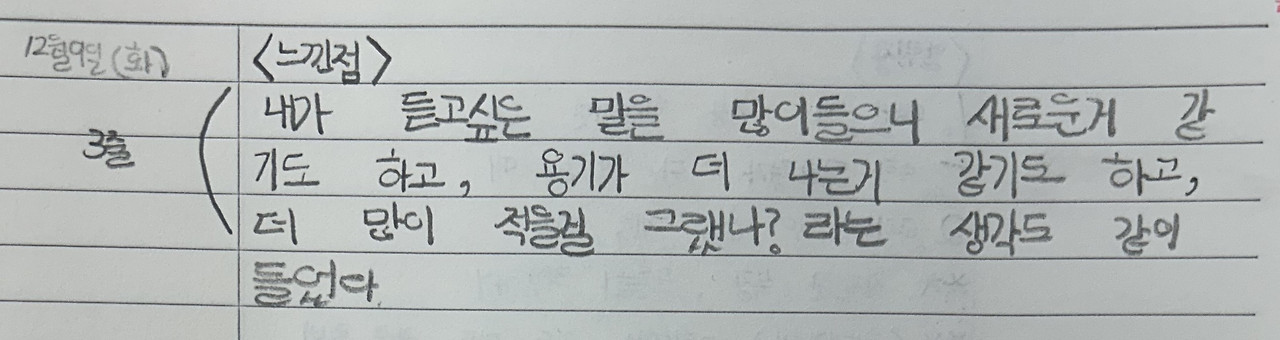 12월9일(화)
<느낀점>
내가 듣고싶은 말을 많이들으니 새로운게 같
3줄
기도 하고, 용기가 더 나는기 같기도 하고,
더 많이 적을걸 그랬나? 라는 생각도 같이
들었다.